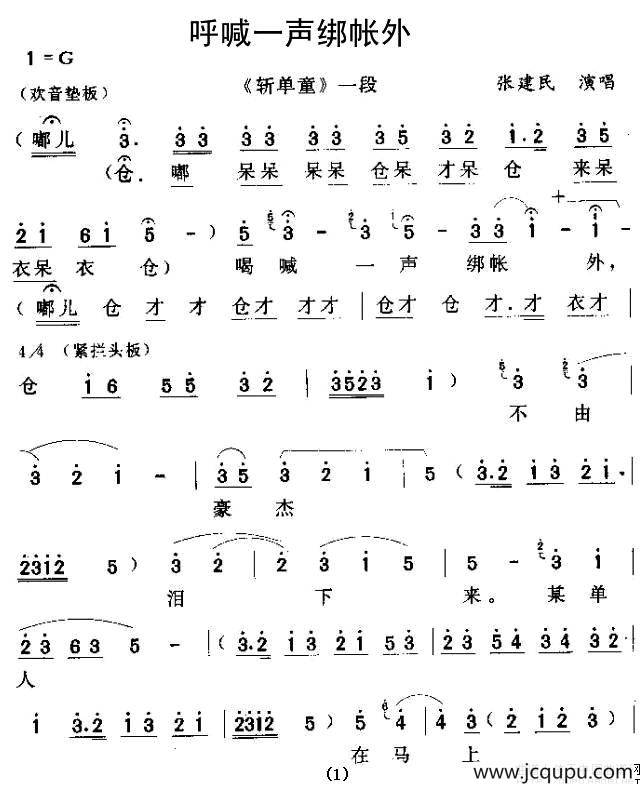 呼喊一声绑帐外
1 = G
《斩单童》一段
张建民 演唱
（欢音垫板）
（嘟儿 3. 33 33 33 35 32 1.2 35
（仓. 嘟 呆呆 呆呆 仓呆 才呆 仓 来呆
21 61 5 - ） 5 5 3 - 2 3 1 5 - 33 1 - 1 -
衣呆 衣 仓） 喝 喊 一 声 绑帐 外，
（嘟儿 仓 才 才 仓才 才才 | 仓才 仓 才. 才 衣才 |
4/4 （紧拦头板）
仓 16 55 32 | 3523 1 ） 5 3 2 3 |
不 由
3 2 1 - | 35 3 2 1 | 5 （ 3.2 13 21. |
豪 杰
2312 5 ） 3 2 | 2 3 1 5 | 5 - 2 3 1 |
泪 下 来。 某 单
23 63 5 - | （ 3.2 13 21 53 | 32 54 34 32 |
人
1 3.2 13 21 | 2312 5 ） 5 6 4 | 4 3 （ 2 12 3 ） |
在 马 上
（1）
www.jcqupu.com